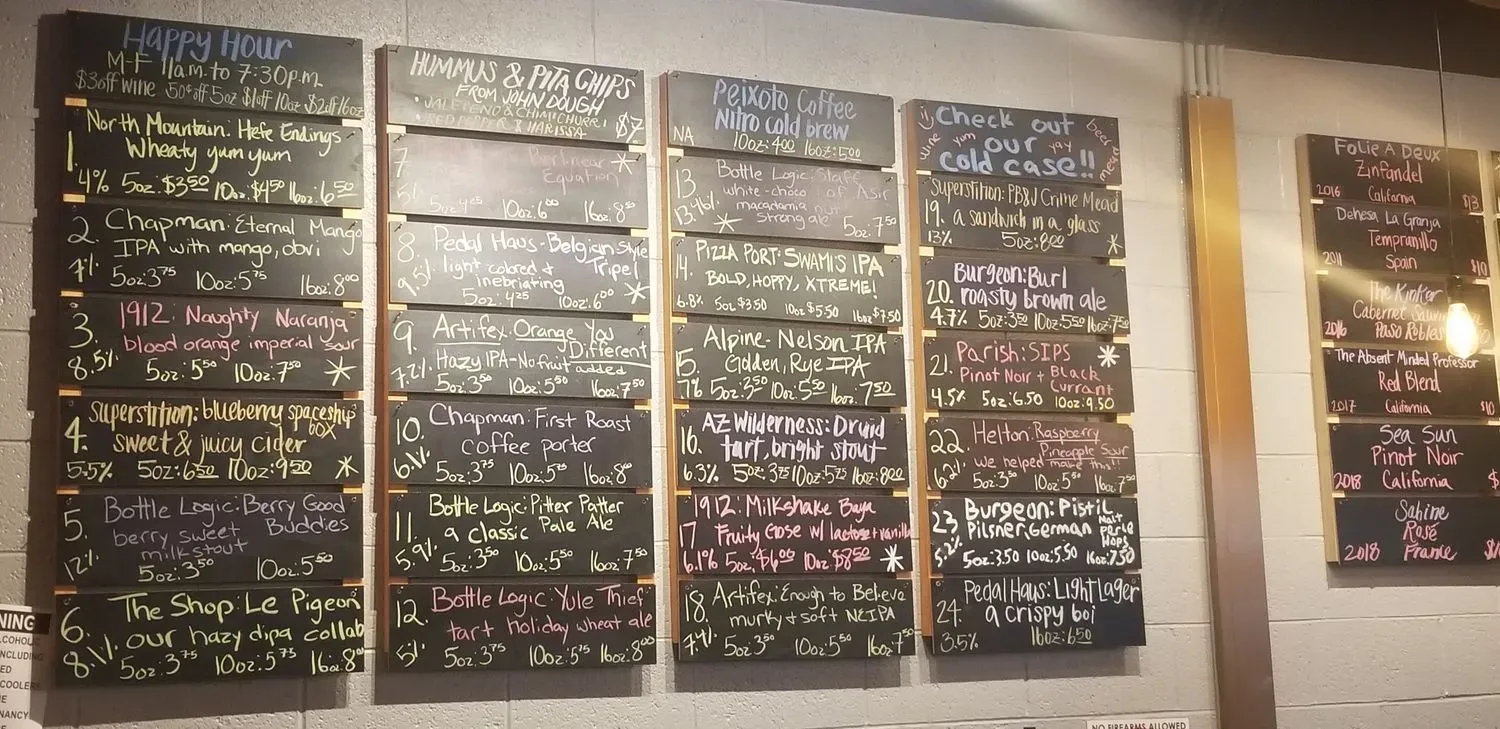 Happy Hour
M-F 11a.m. to 7:30p.m.
$3off wine 50¢off 5oz $1off 10oz $2off 16oz
North Mountain: Hefe Endings
1. Wheaty yum yum
4% 5oz: $3.50 10oz: $4.50 16oz: 6.50
2. Chapman: Eternal Mango
IPA with mango, obvi
7% 5oz: 3.75 10oz: 5.75 16oz: 8.00
3. 1912: Naughty Naranja
blood orange imperial sour
8.5% 5oz: 5.50 10oz: 7.50 *
Superstition: blueberry spaceship
box
4. sweet & juicy cider
5.5% 5oz: 6.50 10oz: 9.50 *
5. Bottle Logic: Berry Good
berry sweet Buddies
milk stout
12% 5oz: 3.50 10oz: 5.50
6. The Shop: Le Pigeon
our hazy dipa collab
8.1% 5oz: 3.75 10oz: 5.75 16oz: 8.00
HUMMUS & PITA CHIPS
FROM JOHN DOUGH
• JALEPENO & CHIMICHURRI
• RED PEPPER & HARISSA $7
7 Berlinear *
Equation
5% 5oz: 4.25 10oz: 6.00 16oz: 8.50
8. Pedal Haus - Belgian Style
light colored & Tripel
9.5% inebriating
5oz: 4.25 10oz: 6.00 *
9. Artifex: Orange You
Different
Hazy IPA - No fruit added
7.2% 5oz: 3.50 10oz: 5.50 16oz: 7.50
10. Chapman: First Roast
coffee porter
6.1% 5oz: 3.75 10oz: 5.75 16oz: 8.00
11. Bottle Logic: Pitter Patter
a classic Pale Ale
5.9% 5oz: 3.50 10oz: 5.50 16oz: 7.50
12. Bottle Logic: Yule Thief
tart holiday wheat ale
5% 5oz: 3.75 10oz: 5.75 16oz: 8.00
Peixoto Coffee
Nitro cold brew
NA 10oz: 4.00 16oz: 5.00
Bottle Logic: Staff
13. white-choco of Asir
macadamia nut
13.46% * strong ale 5oz: 7.50
PIZZA PORT: SWAMIS IPA
14. BOLD, HOPPY, XTREME!
6.8% 5oz $3.50 10oz $5.50 16oz $7.50
Alpine - Nelson IPA
5. Golden, Rye IPA
7% 5oz: 3.50 10oz: 5.50 16oz: 7.50
AZ Wilderness: Druid
16. tart, bright stout
6.3% 5oz: 3.75 10oz: 5.75 16oz: 8.00
1912: Milkshake Baya
17 Fruity Gose w/ lactose + vanilla
6.1% 5oz, $6.00 10oz $8.50 *
18. Artifex: Enough to Believe
murky + soft NEIPA
7.4% 5oz: 3.50 10oz: 5.50 16oz: 7.50
Check out
our
cold case!!
wine yum yay beer mead
Superstition: PB&J Crime Mead
19. a sandwich in a glass
13% 5oz: 8.00 *
Burgeon: Burl
20. roasty brown ale
4.7% 5oz: 3.50 10oz: 5.50 16oz: 7.50
21. Parish: SIPS *
Pinot Noir + Black
Currant
4.5% 5oz: 6.50 10oz: 9.50
22. Helton: Raspberry
Pineapple Sour
we helped make this!!
6.2% 5oz: 3.50 10oz: 5.50 16oz: 7.50
23. Burgeon: Pistil
Pilsner, German Malt
Hops
5.2% 5oz: 3.50 10oz: 5.50 16oz: 7.50
Pedal Haus: Light Lager
24. a crispy boi
3.5% 16oz: 6.50
Folie A Deux
Zinfandel
2016 California $13
Dehesa La Granja
Tempranillo
2011 Spain $10
The Kinker
Cabernet
2016 Paso Robles
The Absent Minded Professor
Red Blend
2017 California $10
Sea Sun
Pinot Noir
2018 California $
Sabine
Rosé
2018 France
NING
COHOLIC
NCLUDING
ED
COOLER
NE
NANCY
NO FIREARMS ALLOWED